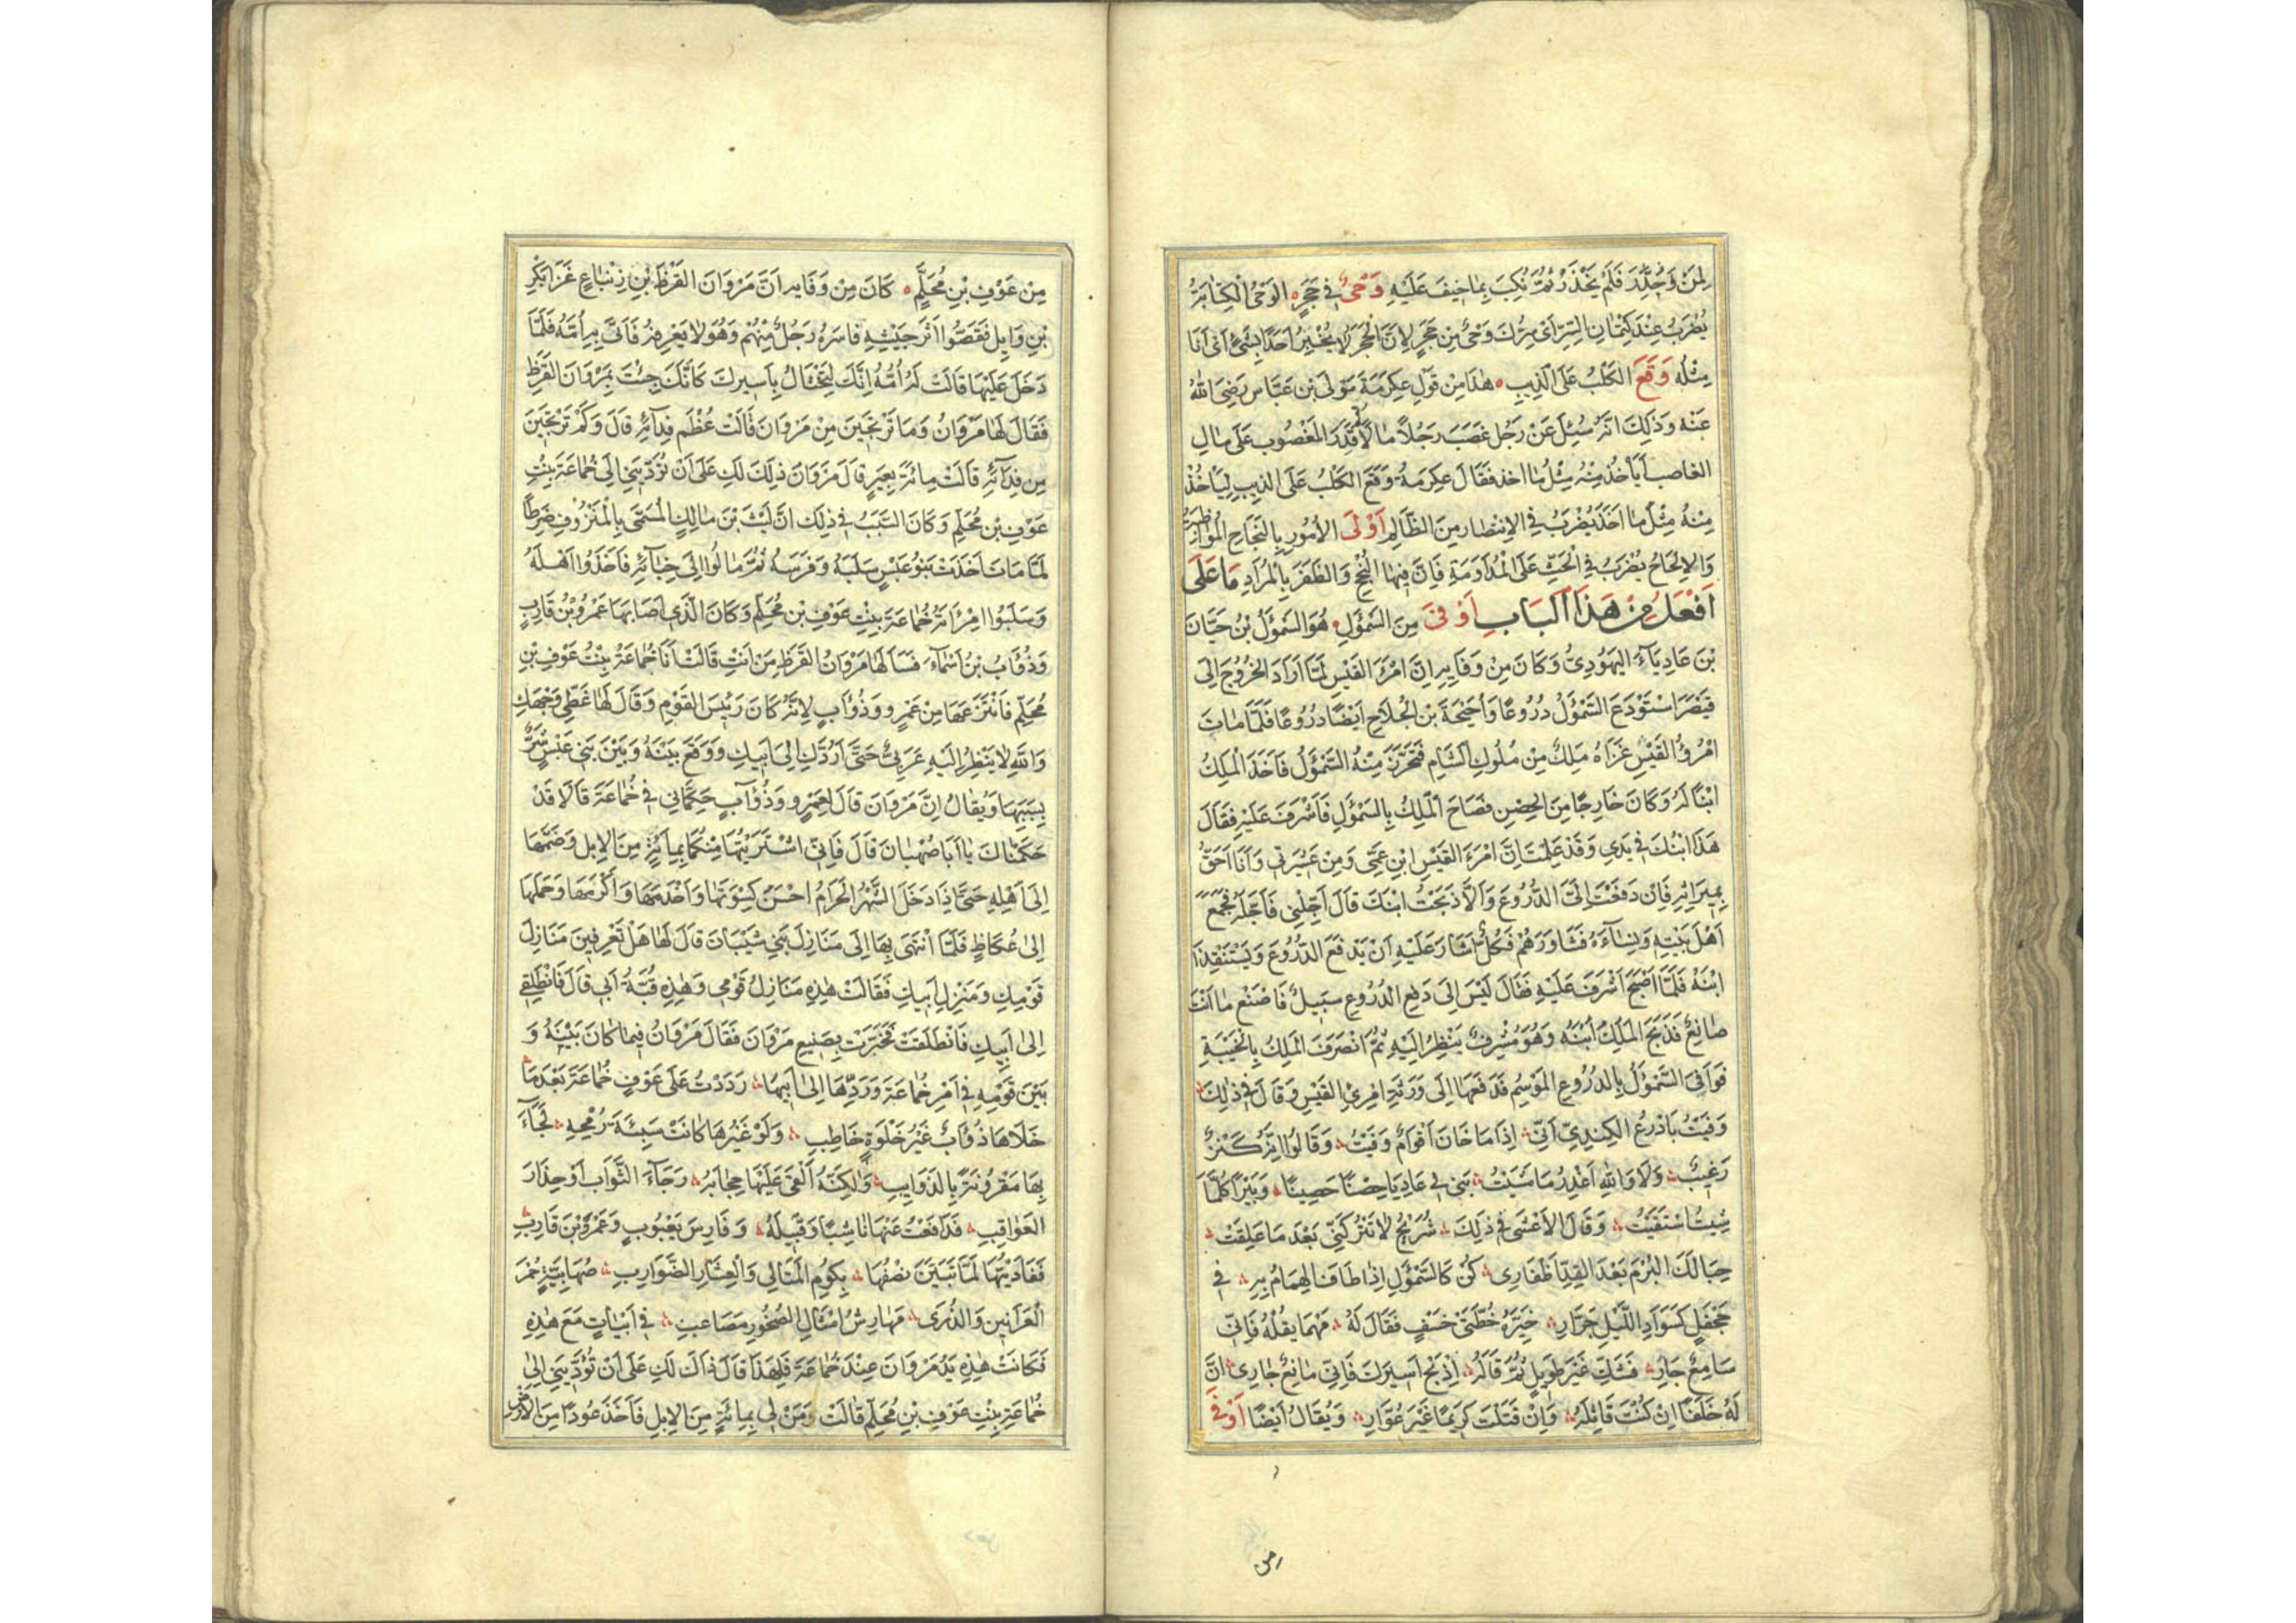 لِمَنْ وُجِدَ فَلَمْ يَحْذَرْ ثُمَّ نُكِبَ بِمَا خِيفَ عَلَيْهِ وَحْيٌ فِي حَجَرٍ الوَحْيُ الْكِتَابَةُ
يُضْرَبُ عِنْدَ كِتْمَانِ السِّرِّ اَيْ سِرُّكَ وَحْيٌ مِن حَجَرٍ لِاَنَّ الْحَجَرَ لَا يُخْبِرُ اَحَدًا بِشَيْءٍ اَيْ اَنَا
مِثْلُهُ وَقَعَ الكَلْبُ عَلَى الذِيبِ هٰذَا مِن قَوْلِ عِكرَمَةَ مَوْلَى بْن عَبَّاس رَضِيَ اللهُ
عَنْهُ وَذٰلِكَ اَنَّهُ سُئِلَ عَنْ رَجُلٍ غَصَبَ رَجُلاً مَالاً ثُمَّ قَدَرَ المَغْصُوب عَلَى مَالِ
الغاصب اَيَأخُذُ مِنْهُ مِثْلَ مَا اخذ فَقَالَ عِكرَمَةُ وَقَعَ الكَلْبُ عَلَى الذِيبِ لِيَاْخُذْ
مِنْهُ مِثْلَ مَا اَخَذَ يُضْرَبُ فِي الاِنْتِصَار مِنَ الظَّالِمِ اَوْلَى الأُمُورِ بِالنَّجَاحِ المُوَاظَبَةُ
وَالاِلْحَاحُ يُضْرَبُ فِي الحَثِّ عَلَى المُدَاوَمَةِ فَاِنَّ فِيهَا النُّجْحَ وَالظَّفَرَ بِالْمُرَادِ مَا عَلَى
اَفْعَلُ مِنْ هَذَا الْبَابِ اَوْفَى مِنَ السَّمَوْأَلِ هُوَ السَّمَوْأَلُ بْنُ حَيَّانَ
بْنَ عَادِيَاءَ اليَهُودِيُّ وَكَانَ مِنْ وَفَايِهِ اِنَّ امْرَؤَ القَيْسِ لَمَّا اَرَادَ الخُرُوجَ اِلَى
قَيْصَرَ اسْتَوْدَعَ السَّمَوْأَلَ دُرُوعًا وَاُحَيْحَةَ بْنَ الْجُلَاحِ اَيْضًا دُرُوعًا فَلَمَّا مَاتَ
امْرُؤُ القَيْسِ غَزَاهُ مَلِكٌ مِنْ مُلُوكِ الشَّامِ فَتَحَرَّزَ مِنْهُ السَّمَوْأَلُ فَاَخَذَ الْمَلِكُ
ابْنًا لَهُ وَكَانَ خَارِجًا مِنَ الحِصْنِ فَصَاحَ الْمَلِكُ بِالسَّمَوْأَلِ فَاَشْرَفَ عَلَيْهِ فَقَالَ
هَذَا ابْنُكَ فِي يَدِي وَقَدْ عَلِمْتَ اِنَّ امْرَءَ القَيْسِ ابْنِ عَمِّي وَمِنْ عَشِيرَتِي وَاَنَا اَحَقُّ
بِمِيرَاثِهِ فَاِنْ دَفَعْتَ اِلَىَّ الدُّرُوعَ وَاِلَّا ذَبَحْتُ ابْنَكَ قَالَ اَجِّلْنِي فَاَجَّلَهُ فَجَمَعَ
اَهْلَ بَيْتِهِ وَنِسَآءَهُ فَشَاوَرَهُمْ فَكُلٌّ اَشَارَ عَلَيْهِ اَنْ يَدْفَعَ الدُّرُوعَ وَيَسْتَنْقِذَ
ابْنَهُ فَلَمَّا اَصْبَحَ اَشْرَفَ عَلَيْهِ فَقَالَ لَيْسَ اِلَى دَفْعِ الدُّرُوعِ سَبِيلٌ فَاصْنَعْ مَا اَنْتَ
صَانِعٌ فَذَبَحَ المَلِكُ ابْنَهُ وَهُوَ مُشْرِفٌ يَنْظُرُ اِلَيْهِ ثُمَّ انْصَرَفَ المَلِكُ بِالْخَيْبَةِ
فَوَافَى السَّمَوْأَلُ بِالدُرُوعِ المَوْسِمَ فَدَفَعَهَا اِلَى وَرَثَةِ امْرِئِ القَيْسِ وَقَالَ فِي ذٰلِكَ
وَفَيْتُ بِاَدْرُعِ الكِنْدِيِّ اَنِّي اِذَا مَا خَانَ اَقْوَامٌ وَفَيْتُ وَقَالُوا اِنَّهُ كَنْزٌ
رَغِيبٌ وَلَا وَاللهِ اَغْدِرُ مَا مَشَيْتُ بَنَى لِي عَادِيَا حِصْنًا حَصِينًا وَبِيْرًا كُلَّمَا
شِيتُ اسْتَقَيْتُ وَقَالَ الاَعْشَى فِي ذٰلِكَ شُرَيْحُ لَا تَتْرُكَنِّي بَعْدَ مَا عَلِقَتْ
حِبَالَكَ اليَوْمَ بَعْدَ القِدِّ اَظْفَارِى كُنْ كَالسَّمَوْأَلِ اِذْ طَافَ الهُمَامُ بِهِ فِي
جَحْفَلٍ كَسَوَادِ اللَّيْلِ جَرَّارِ خَيَّرَهُ خُطَّتَيْ خَسْفٍ فَقَالَ لَهُ مَهْمَا يَقُلْهُ فَاِنِّي
سَامِعٌ جَارِ فَشَكَّ غَيْرَ طَوِيلٍ ثُمَّ قَالَ لَهُ اِذْبَحْ اَسِيرَكَ فَاِنِّي مَانِعٌ جَارِى اِنَّ
لَهُ خَلَفًا اِنْ كُنْتَ قَاتِلَهُ وَاِنْ قَتَلْتَ كَرِيمًا غَيْرَ عُوَّارِ وَيُقَالُ اَيْضًا اَوْفَى
من
مِن عَوْفِ بْنِ مُحَلِّمٍ كَانَ مِنْ وَفَايِهِ اَنَّ مَرْوَانَ القَرَظِ بْنِ زِنْبَاعٍ غَزَا بَكْرَ
بْنِ وَايِل فَقَصُّوا اَثَرَ جَيْشِهِ فَاَسَرَهُ رَجُلٌ مِنْهُمْ وَهُوَ لَا يَعْرِفُهُ فَاَتَى بِهِ اُمَّهُ فَلَمَّا
دَخَلَ عَلَيْهَا قَالَتْ لَهُ اُمُّهُ اِنَّكَ لَتَخْتَالُ بِاَسِيرِكَ كَاَنَّكَ جِئْتَ بِمَرْوَانَ القَرَظِ
فَقَالَ لَهَا مَرْوَانُ وَمَا تَرْتَجِينَ مِنْ مَرْوَانَ قَالَتْ عُظْمَ فِدَآئِهِ قَالَ وَكَمْ تَرْتَجِينَ
مِن فِدَآئِهِ قَالَتْ مِائَةَ بَعِيرٍ قَالَ مَرْوَانُ ذٰلِكَ لَكِ عَلَى اَنْ تُؤَدِّينِي اِلَى خُمَاعَةَ بِنْتِ
عَوْفِ بْنِ مُحَلِّمٍ وَكَانَ السَّبَبُ فِي ذٰلِكَ اَنَّ لَيْثَ بْنَ مَالِكٍ الْمُسَمَّى بِالْمَنْزُوفِ ضَرِطًا
لَمَّا مَاتَ اَخَذَتْ بَنُو عَبْسٍ سَلَبَهُ وَفَرَسَهُ ثُمَّ مَالُوا اِلَى خِبَآئِهِ فَاَخَذُوا اَهْلَهُ
وَسَلَبُوا امْرَاَتَهُ خُمَاعَةَ بِنْتِ عَوْفِ بْنِ مُحَلِّمٍ وَكَانَ الَّذِي اَصَابَهَا عَمْرُو بْنُ قَارِبٍ
وَذُؤَابُ بْنُ اَسْمَاءَ فَسَاَلَهَا مَرْوَانُ القَرَظِ مَنْ اَنْتِ قَالَتْ اَنَا خُمَاعَةُ بِنْتُ عَوْفِ بْنِ
مُحَلِّمٍ فَانْتَزَعَهَا مِنْ عَمْرٍو وَذُؤَابٍ لِاَنَّهُ كَانَ رَئِيسَ القَوْمِ وَقَالَ لَهَا غَطِّي وَجْهَكِ
وَاللهِ لَا يَنْظُرُ اِلَيْهِ عَرَبِيٌّ حَتَّى اَرُدَّكِ اِلَى اَبِيكِ وَوَقَعَ بَيْنَهُ وَبَيْنَ بَنِي عَبْسٍ شَرٌّ
بِسَبَبِهَا وَيُقَالُ اِنَّ مَرْوَانَ قَالَ لِعَمْرٍو وَذُؤَابٍ حَكِّمَانِي فِي خُمَاعَةَ قَالَا قَدْ
حَكَّمْنَاكَ يَا اَبَا صُهْبَانَ قَالَ فَاِنِّي اشْتَرَيْتُهَا مِنْكُمَا بِمِائَةٍ مِنَ الاِبِلِ وَضَمَّهَا
اِلَى اَهْلِهِ حَتَّى اِذَا دَخَلَ الشَّهْرُ الحَرَامُ اَحْسَنَ كِسْوَتَهَا وَاَخْدَمَهَا وَاَكْرَمَهَا وَحَمَلَهَا
اِلَى عُكَاظٍ فَلَمَّا انْتَهَى بِهَا اِلَى مَنَازِلَ بَنِي شَيْبَانَ قَالَ لَهَا هَلْ تَعْرِفِينَ مَنَازِلَ
قَوْمِكِ وَمَنْزِلَ اَبِيكِ فَقَالَتْ هٰذِهِ مَنَازِلُ قَوْمِي وَهٰذِهِ قُبَّةُ اَبِي قَالَ فَانْطَلِقِي
اِلَى اَبِيكِ فَانْطَلَقَتْ فَخَبَّرَتْ بِصَنِيعِ مَرْوَانَ فَقَالَ مَرْوَانُ فِيمَا كَانَ بَيْنَهُ وَ
بَيْنَ قَوْمِهِ فِي اَمْرِ خُمَاعَةَ وَرَدِّهَا اِلَى اَبِيهَا رَدَدْتُ عَلَى عَوْفٍ خُمَاعَةَ بَعْدَ مَا
خَلَاهَا ذُؤَابٌ غَيْرَ خَلْوَةِ خَاطِبِ وَلَوْ غَيْرُهَا كَانَتْ سَبِيَّةَ رُمْحِهِ لَجَاءَ
بِهَا مَقْرُونَةً بِالذَوَايِبِ وَلٰكِنَّهُ اَلْقَى عَلَيْهَا حِجَابَهُ رَجَآءَ الثَّوَابِ اَوْ حِذَارَ
العَوَاقِبِ فَدَافَعْتُ عَنْهَا نَاشِبًا وَقَبِيلَهُ وَفَارِسَ يَعْبُوبٍ وَعَمْرَو بْنَ قَارِبِ
فَفَادَيْتُهَا لَمَّا تَبَيَّنَ نِصْفُهَا بِكُومِ المَتَالِي وَالْعِشَارِ الضَّوَارِبِ صُهَابِيَّةٍ حُمْرَ
الْعَرَانِينِ وَالذُّرَى مَهَارِيسَ اَمْثَالِ الصُّخُورِ مَصَاعِبِ فِي اَبْيَاتٍ مَعَ هٰذِهِ
فَكَانَتْ هٰذِهِ يَدُ مَرْوَانَ عِنْدَ خُمَاعَةَ فَلِهٰذَا قَالَ ذَاكَ لَكِ عَلَى اَنْ تُؤَدِّينِي اِلَى
خُمَاعَةَ بِنْتِ عَوْفِ بْنِ مُحَلِّمٍ قَالَتْ وَمَنْ لِي بِمِائَةٍ مِنَ الاِبِلِ فَاَخَذَ عُودًا مِنَ الاَرْضِ